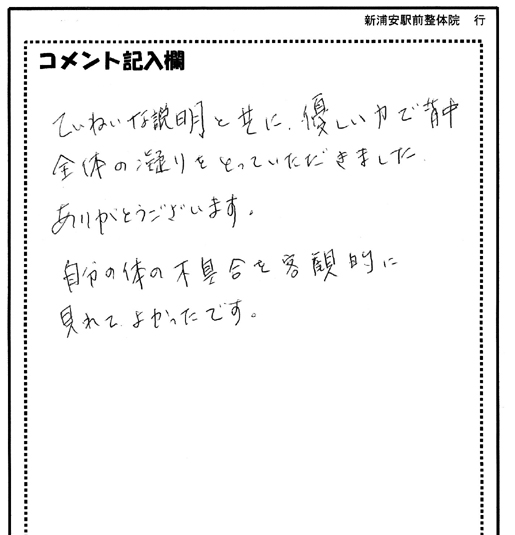 新浦安駅前整体院 行
コメント記入欄
ていねいな説明と共に、優しい力で背中
全体の凝りをとっていただきました。
ありがとうございます。
自分の体の不具合を客観的に
見れてよかったです。